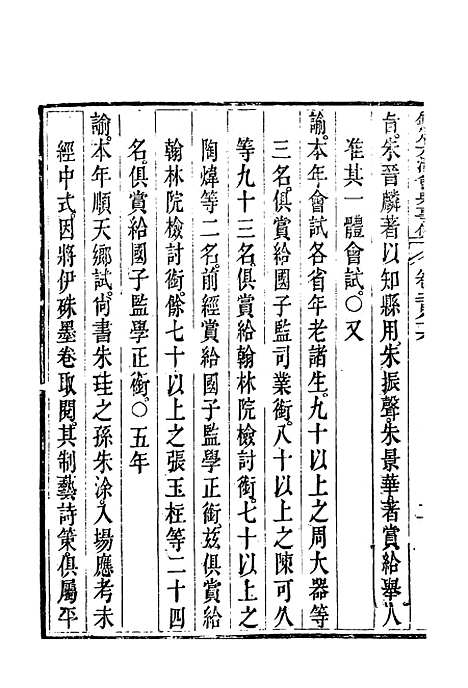 旨朱晉麟著以知縣用朱振聲朱景華著賞給舉人
准其一體會試〇又
諭本年會試各省年老諸生九十以上之周大器等
三名俱賞給國子監司業銜八十以上之陳可久
等九十三名俱賞給翰林院檢討銜七十以上之
陶煒等二名前經賞給國子監學正銜茲俱賞給
翰林院檢討銜餘七十以上之張玉枉等二十四
名俱賞給國子監學正銜〇五年
諭本年順天鄉試尚書朱珪之孫朱涂入場應考未
經中式因將伊硃墨卷取閱其制藝詩策俱屬平